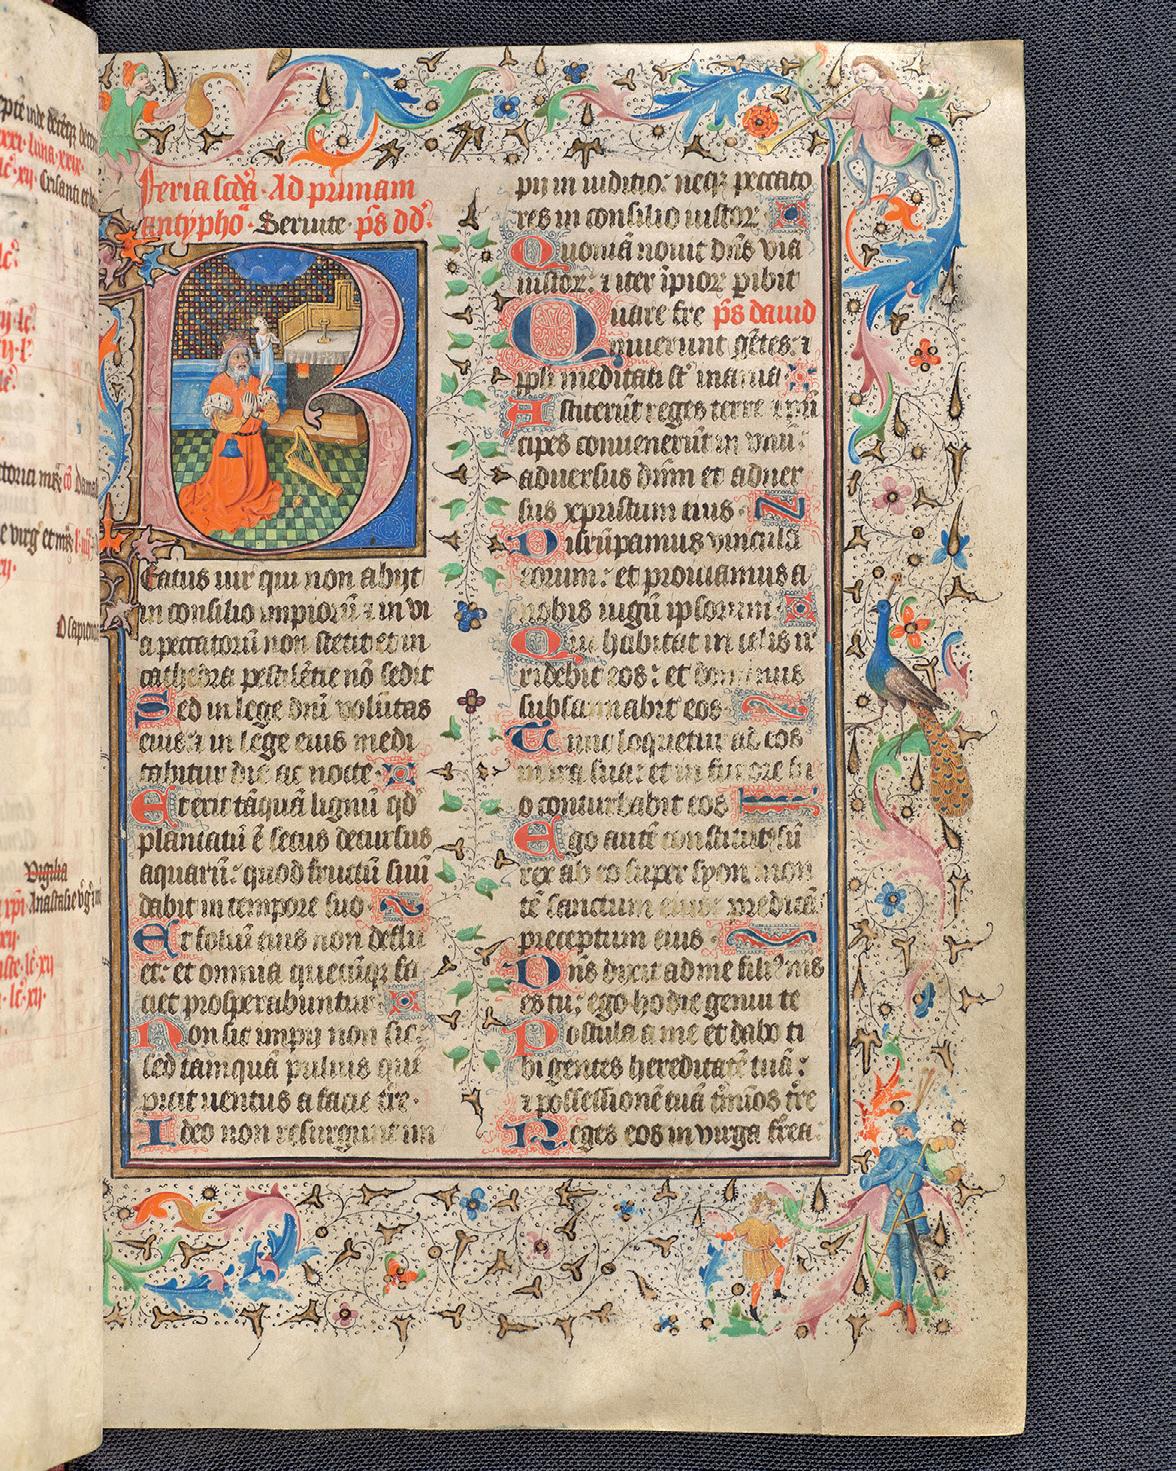 feria scda. Ad primam
antypho. Seruite. ps dd.
Beatus uir qui non abijt
in consilio impiorū ⁊ in vi
a peccatorū non stetit et in
cathedra pestilētie nō sedit
Sed in lege dnī volūtas
eius ⁊ in lege eius medi
tabitur die ac nocte
Et erit tāquā lignū qd
plantatū ē secus decursus
aquarū: quod fructū suū
dabit in tempore suo
Et foliū eius non deflu
et: et omnia quecūqꝫ fa
ciet prosperabuntur
Non sic impij non sic:
sed tamquā puluis quē
proicit uentus a facie tre.
Ideo non resurgunt im
pij in iuditio: neqꝫ peccato
res in consilio iustor
Quoniā nouit dns viā
iustor: ⁊ iter īpior pibit
Quare fre ps dauid
muerunt gētes: ⁊
ipli meditati st inania
Astiterūt reges terre ⁊ prī
cipes conuenerūt in vnū:
aduersus dnm et aduer
sus xpristum eius
Dirūpamus vincula
eorum: et proiciamus a
nobis iugū ipsorum
Qui habitat in celis ir
ridebit eos: et dominus
subsannabit eos
Tunc loquetur ad eos
in ira sua: et in furore su
o conturbabit eos
Ego autē constitut sū
rex ab eo super syon mon
tē sanctum eius: predicās
preceptum eius
Dns dixit ad me fili9 meus
es tu: ego hodie genui te
Postula a me et dabo ti
bi gentes hereditatē tuā:
⁊ possessionē tuā tmīos tre
Reges eos in virga ferea:
Crisanti et
Vigilia
Anastasie vgīs